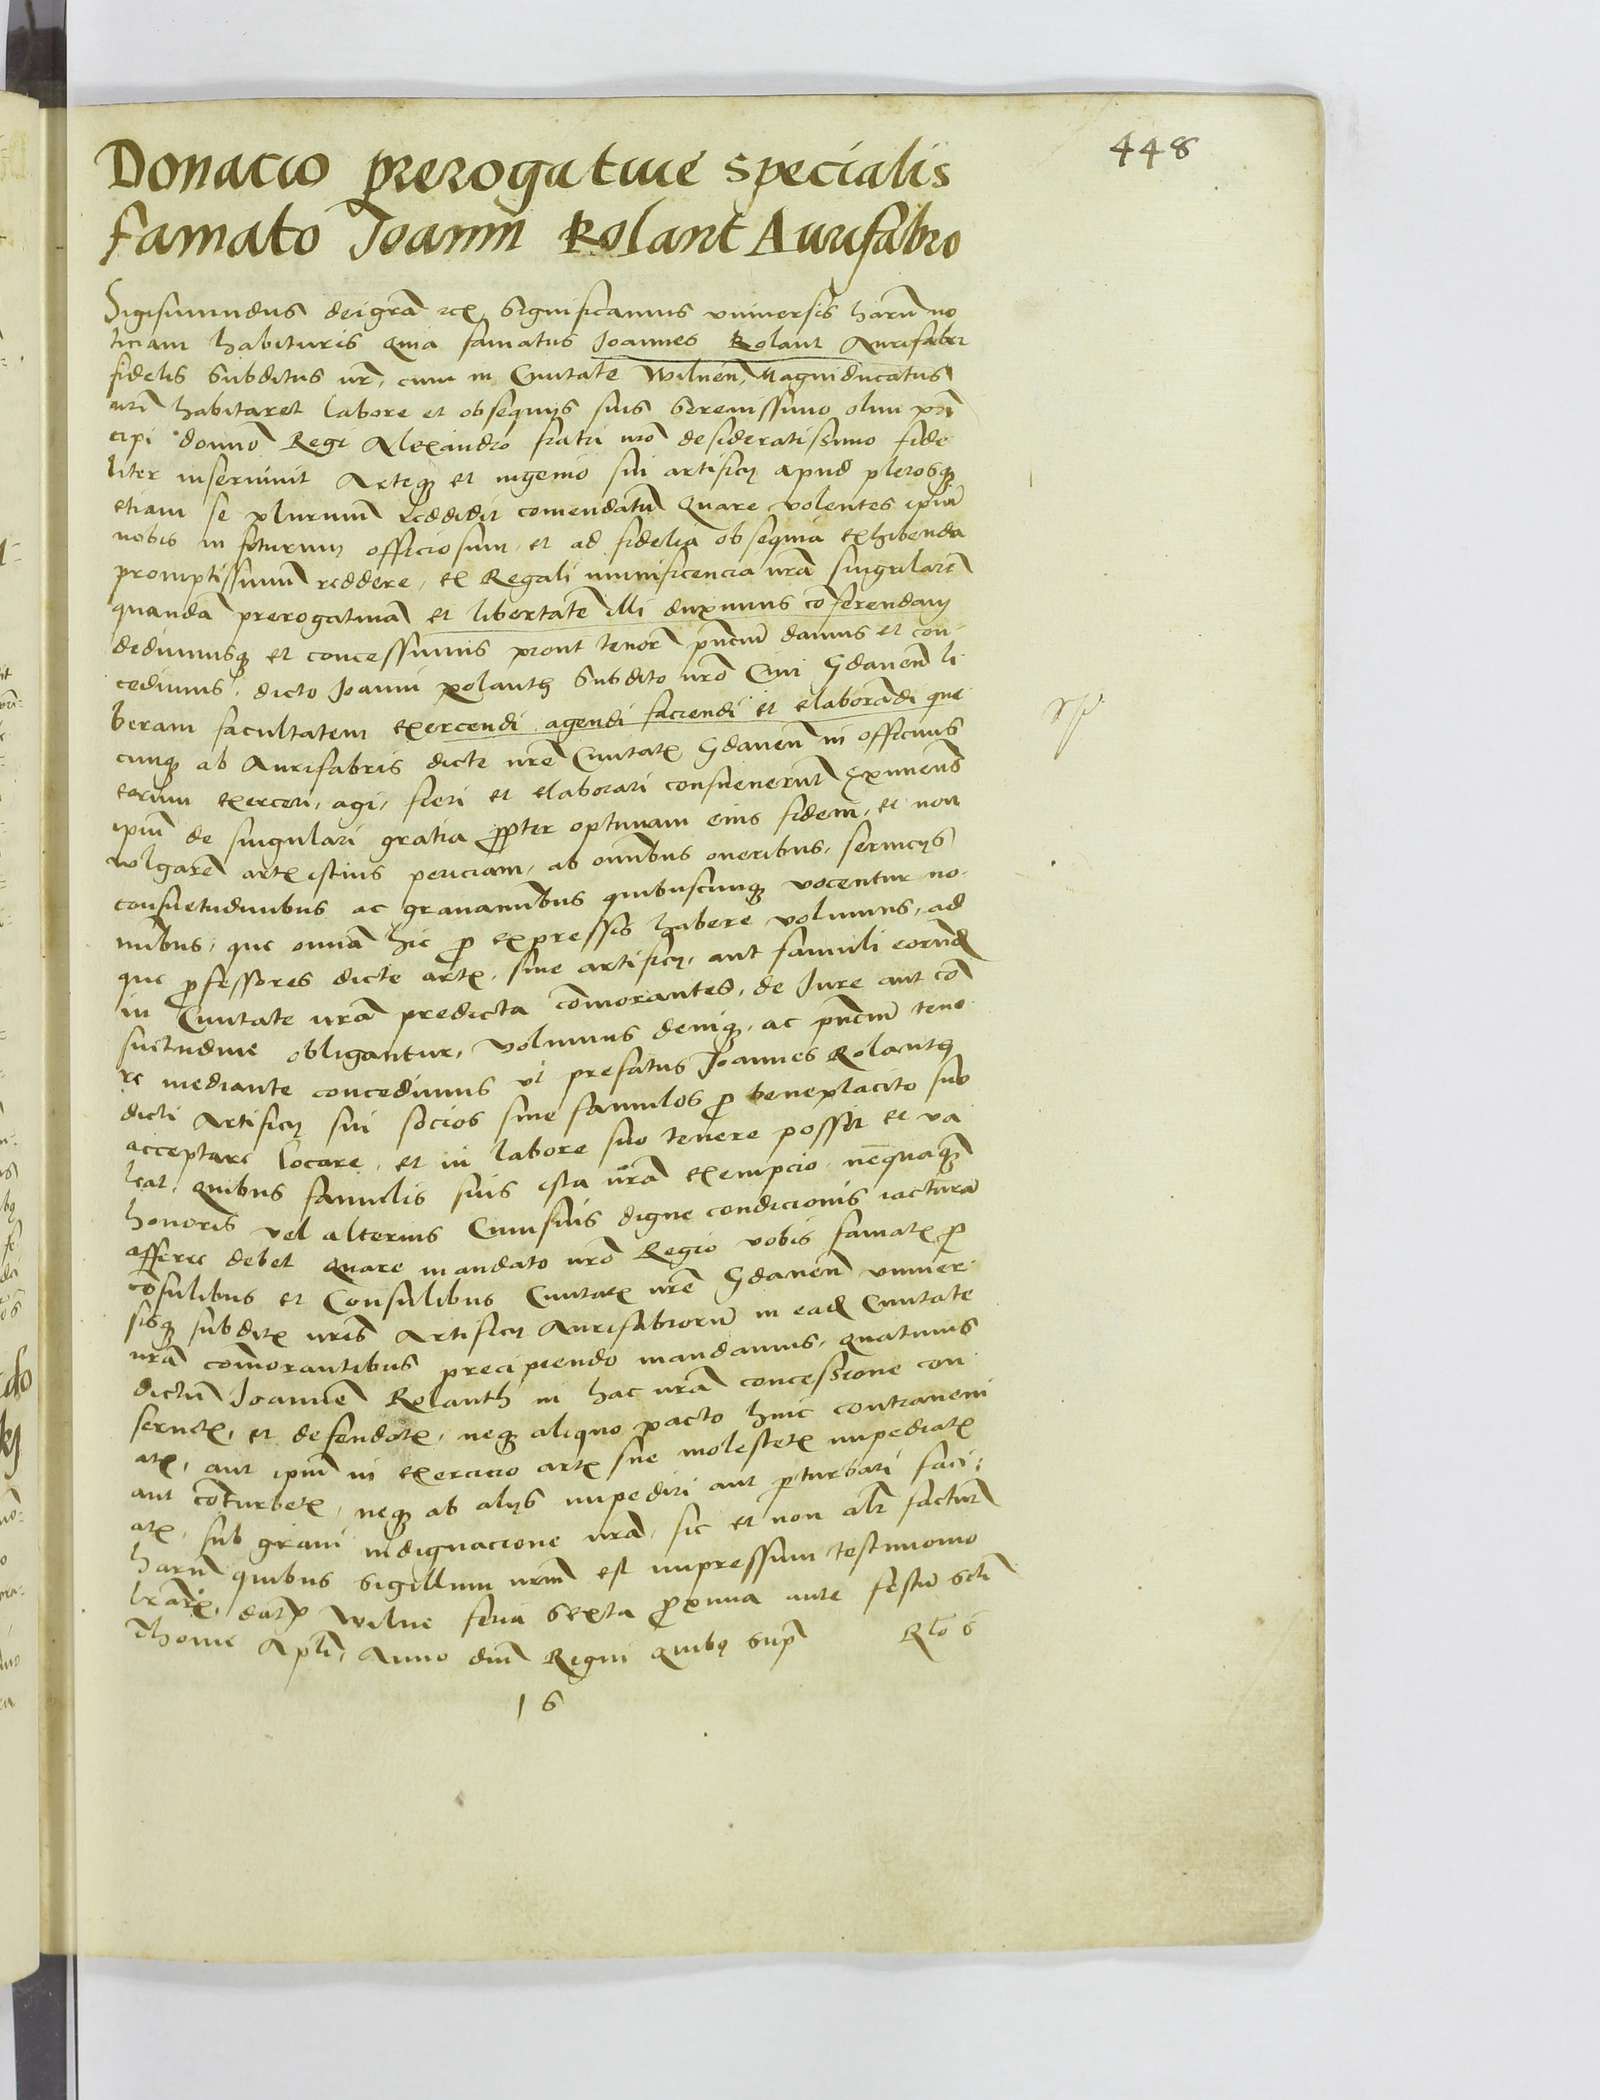 448
Donacio prerogatiue specialis
famato Joanni Rolant Aurifabro
Sigismundus dei grã rex Significamus vniuersis harũ no
ticiam habituris quia famatus Joannes Rolant Aurifaber
fidelis subditus nr̃, cum in Ciuitate Wilneñ, Magniducatus
nrĩ habitaret labore et obsequijs suis Serenissimo olim prin
cipi domnõ Regi Alexandro fratri nrõ desideratissimo fide
liter inseruiuit Arteqȝ et ingenio sui artificij apud plerosqȝ
etiam se plurimũ reddidit comendatũ Quare volentes ipm̃
nobis in futurum officiosum, et ad fidelia obsequia exhibenda
promptissimũ reddere, ex Regali munificencia nrã singularẽ
quandã prerogatiuã et libertatẽ illi duximus cõferendam
dedimusqȝ et concessimus prout tenorẽ pñciũ damus et con
cedimus, dicto Joanni Rolanth subdito nrõ Ciui Gdaneñ li
beram facultatem exercendi agendi faciendi et elaborãdi que
cunqȝ ab Aurifabris dicte nrẽ Ciuitatꝭ Gdaneñ in officinis
eorum exerceri, agi, fieri et elaborari consueuerũt Eximentes
ipm̃ de singulari gratia ꝓpter optimam eius fidem, et non
wlgarẽ artꝭ istius periciam, ab omnibus oneribus, seruicijs
consuetudinibus ac grauaminibus quibuscunqȝ vocentur no
minibus, que omnia hic ꝓ expressis habere volumus, ad
que ꝓfessores dicte artꝭ, siue artificij, aut famuli eorundẽ
in Ciuitate nrã predicta cõmorantes, de Jure aut cõ
suetudine obligantur, volumus deniqȝ, ac pñciũ teno
re mediante concedimus vt prefatus Joannes Rolanth
dicti Artificij sui socios siue famulos ꝓ beneplacito suo
acceptare locare, et in labore suo tenere possit et va
leat, quibus famulis suis ista nrã exempcio nequaqȝ
honoris vel alterius Cuiusuis digne condicionis iacturã
afferre debet Quare mandato nrõ Regio vobis famatꝭ ꝓ
cõsulibus et Consulibus Ciuitatꝭ nrẽ Gdaneñ vniuer
sisqȝ subditꝭ nris Artificij Aurifabrorũ in eadẽ Ciuitate
nrã cõmorantibus precipiendo mandamus, quatinus
dictũ Joannẽ Rolanth in hac nrã concessione con
seruetꝭ, et defendatꝭ, neqȝ aliquo pacto huic contraueni
atꝭ, aut ipm̃ in exercicio artꝭ sue molestetꝭ impediatꝭ
aut cõturbetꝭ, neqȝ ab alijs impediri aut ꝑturbari faci
atꝭ, sub graui indignacione nrã, sic et non alr̃ facturi
harũ quibus Sigillum nrm̃ est impressum testimonio
lrãrꝭ, datꝭ Wilne feria sexta ꝓxima ante festũ scti
Thome Apli, Anno dni Regni quibꝫ supᷓ Rlo S
16